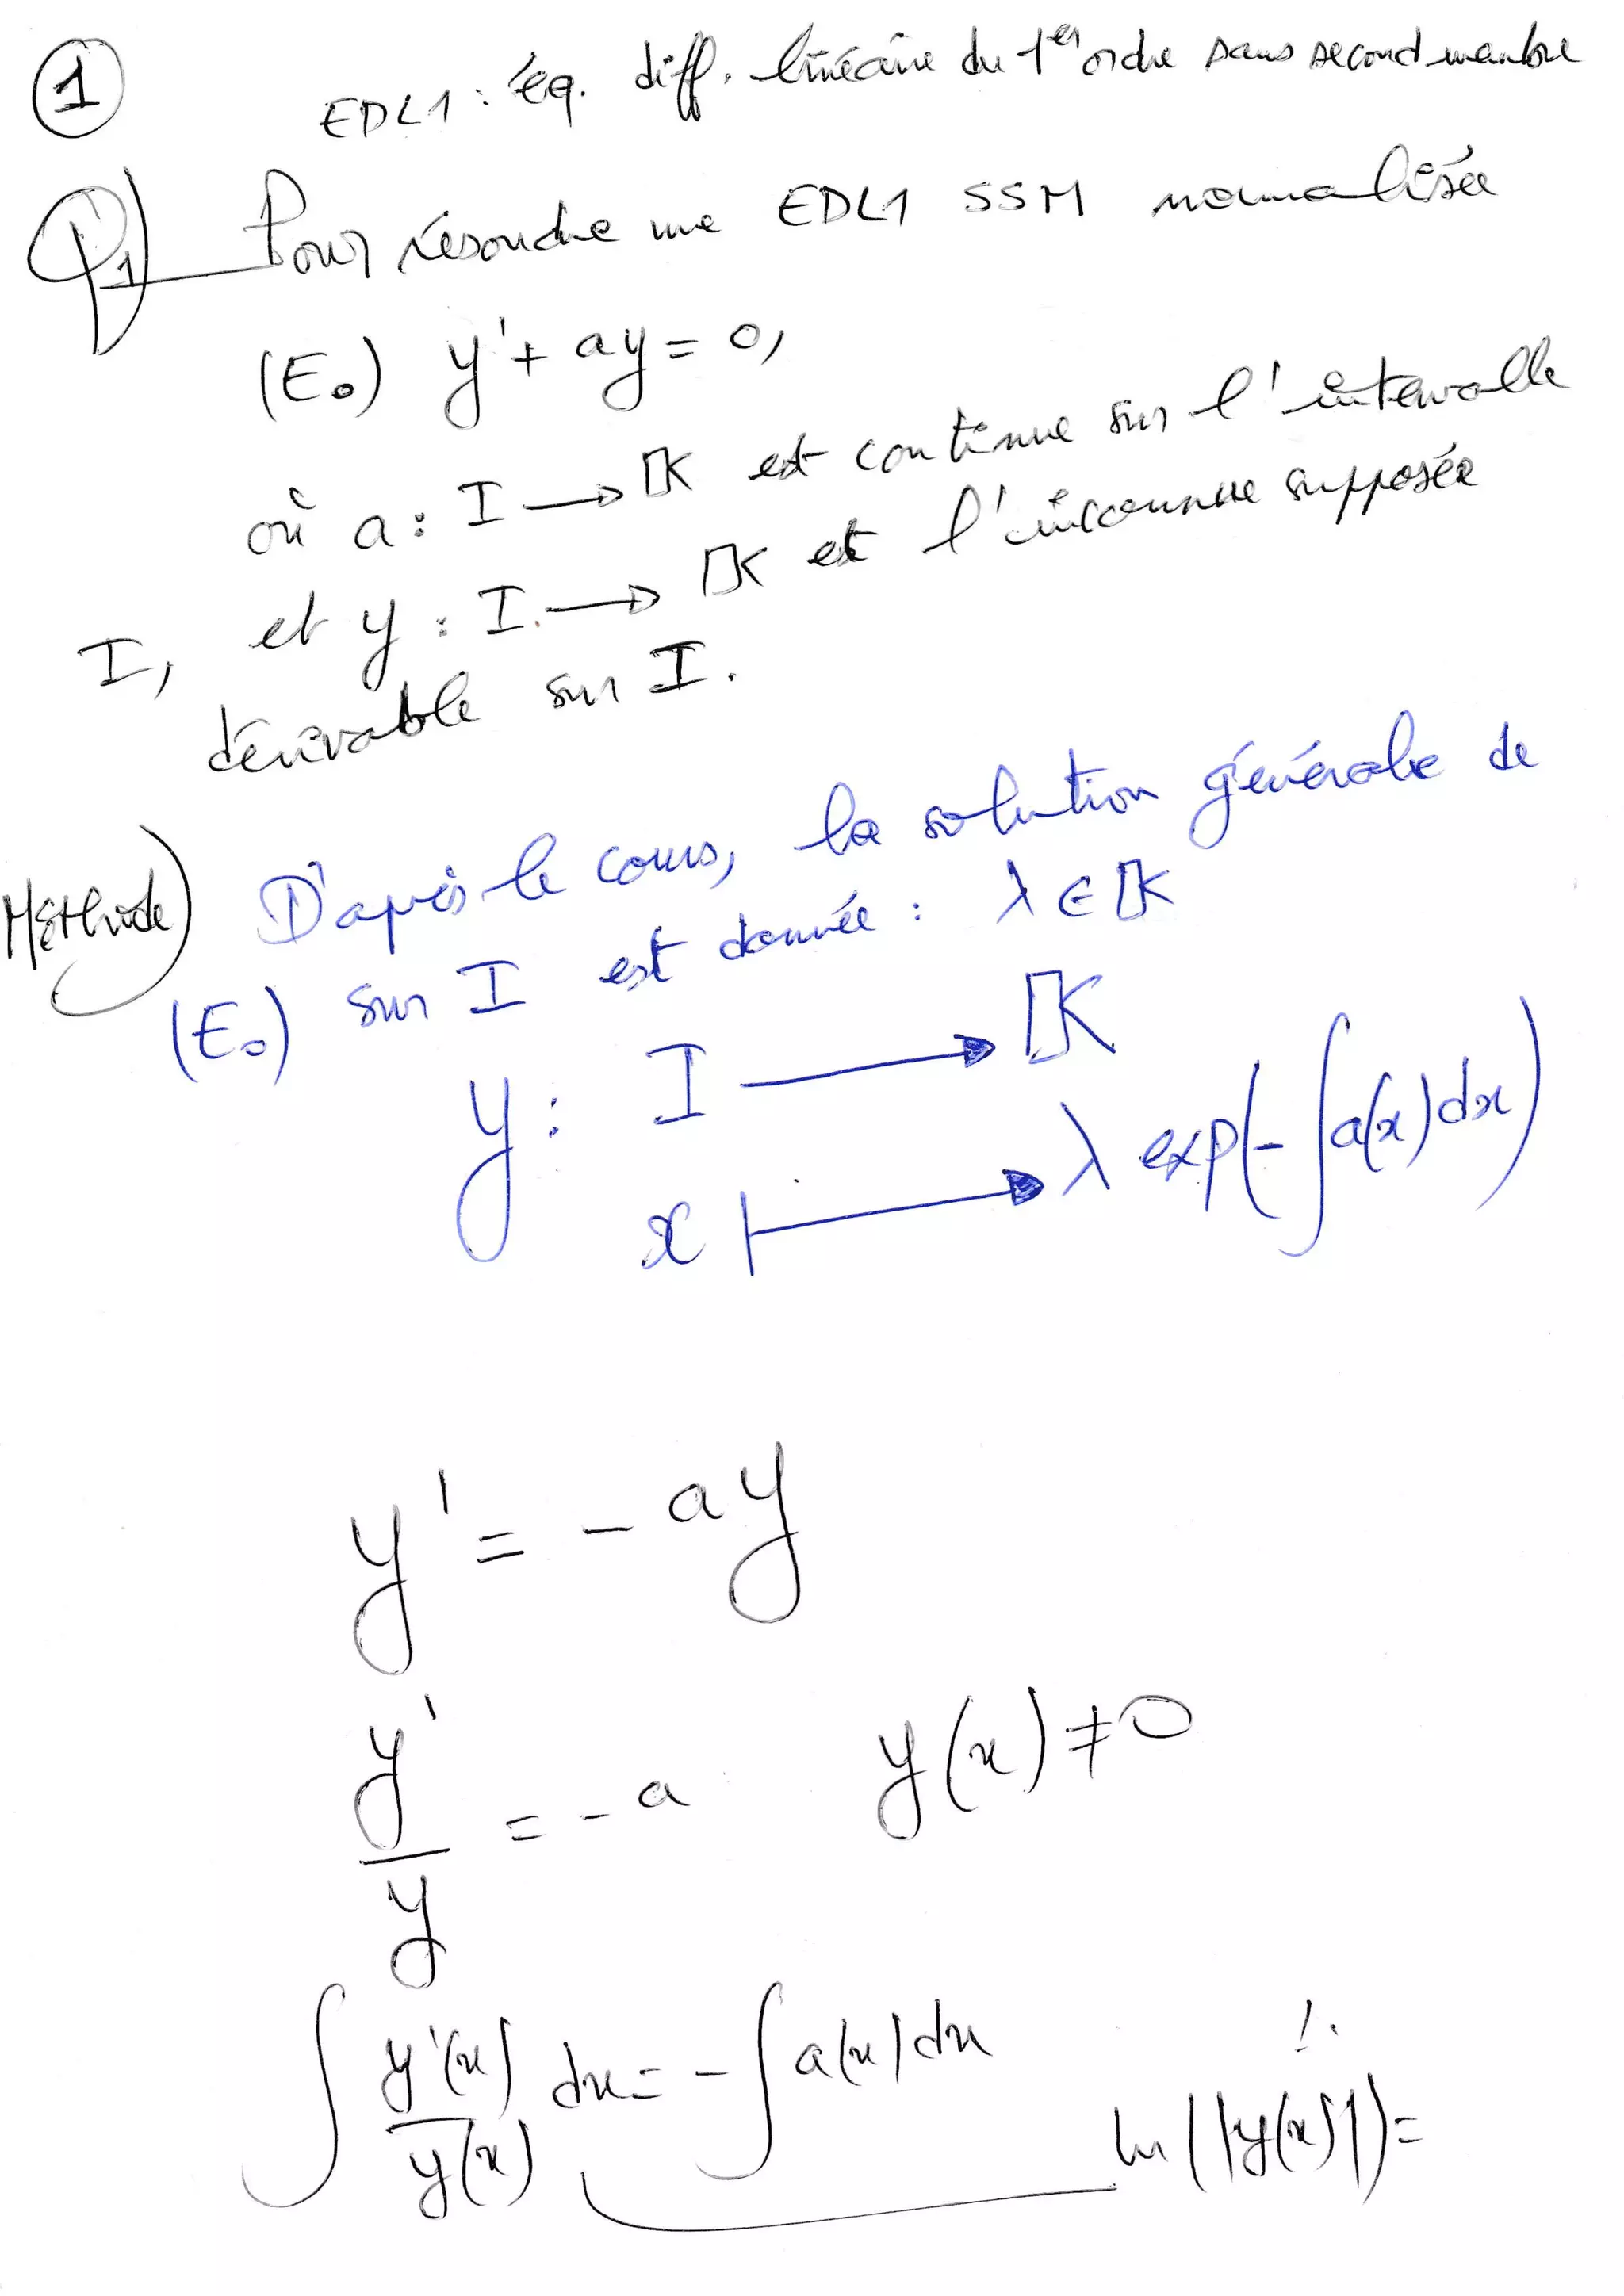 ①
EDL1 : éq. diff. linéaire du 1er ordre sans second membre
Q1) Pour résoudre une EDL1 SSM normalisée
(E₀) y' + ay = 0,
où a : I → 𝕂 est continue sur l'intervalle
I, et y : I → 𝕂 est l'inconnue supposée
dérivable sur I.
Méthode) D'après le cours, la solution générale de
(E₀) sur I est donnée : λ ∈ 𝕂
y : I → 𝕂
x ↦ λ exp(- ∫ a(x) dx)
y' = - ay
y'/y = - a y(x) ≠ 0
∫ y'(x)/y(x) dx = - ∫ a(x) dx
ln(|y(x)|) =